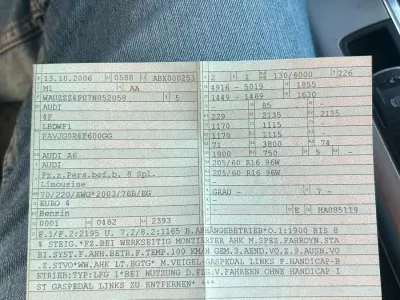 13.10.2006 0588 ABX000253
M1 AA
WAUZZZ4F07N052058 5
AUDI
4F
LBDWF1
AUDI A6
AUDI
Fz.z.Pers.bef.b. 8 Spl.
Limousine
70/220/EWG*2003/76B/EG
EURO 4
Benzin
0001 0462 2393
2 1 130/6000 226
4916 - 5019 1855
1449 - 1469 1630
- 85 -
229 2135 2135
1170 1115 -
1170 1115 -
71 3800 74
1900 750 5 -
205/60 R16 96W
205/60 R16 96W
-
GRAU - 7 -
E HA085119
F.1/F.2:2195 U. 7.2/8.2:1165 B.ANHÄNGEBETRIEB*O.1:1900 BIS 8
% STEIG.*FZ.BEI WERKSEITIG MONTIERTER AHK M.SPEZ.FAHRDYN.STA
BI.SYST.F.ANH.BETR.F.TEMP.100 KM/H GEM.3.AEND.VO.Z.9.AUSN.VO
Z.STVO*WW.AHK LT.EGTG* M.VEIGEL GASPEDAL LINKS F.HANDICAP B
ETRIEB:TYP:LFG 1*BEI NUTZUNG D.FZG.V.FAHRERN OHNE HANDICAP I
ST GASPEDAL LINKS ZU ENTFERNEN*